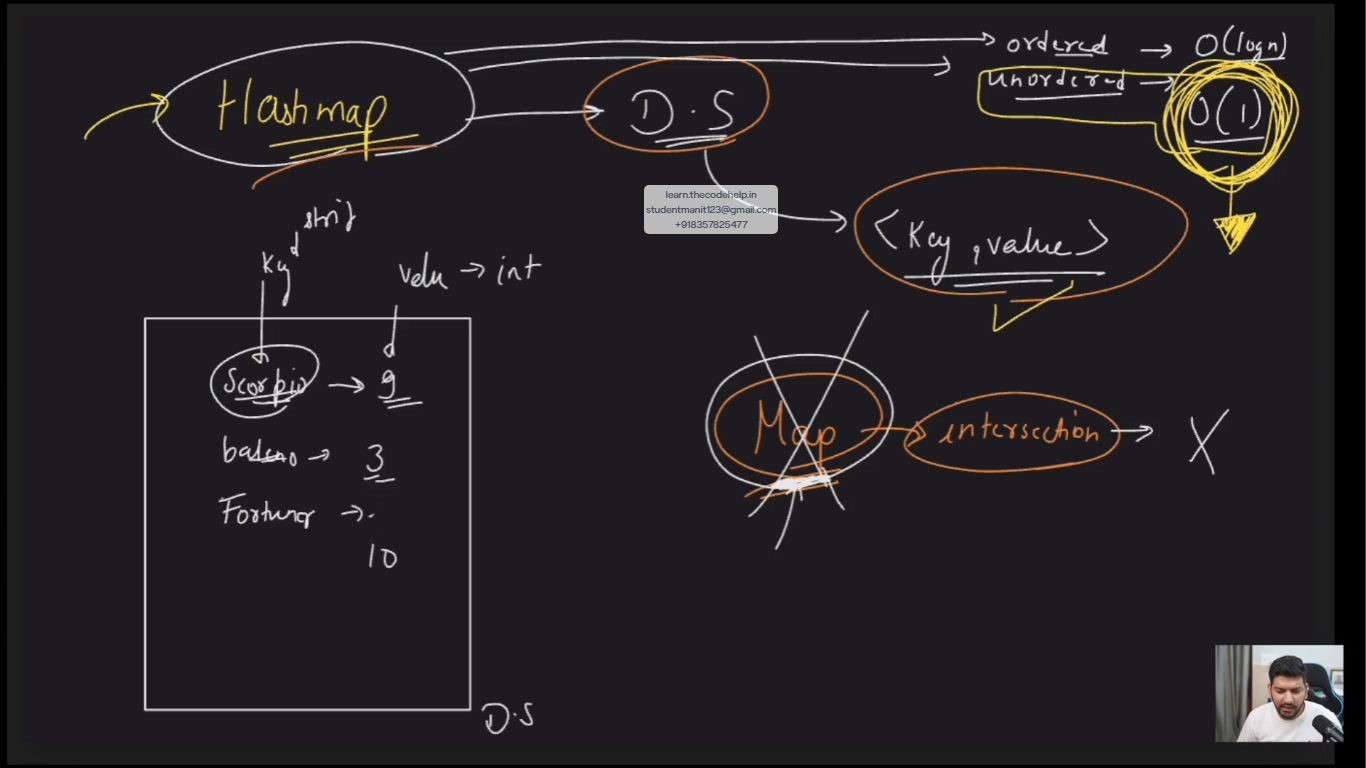 ordered → O(logn)
Hashmap → D.S
unordered → O(1)
learn.thecodehelp.in
studentmanit123@gmail.com
+918357825477
<Key, value>
string
Key
value → int
Scorpio → 9
baleno → 3
Fortuner → .
10
Map → intersection → X
D.S